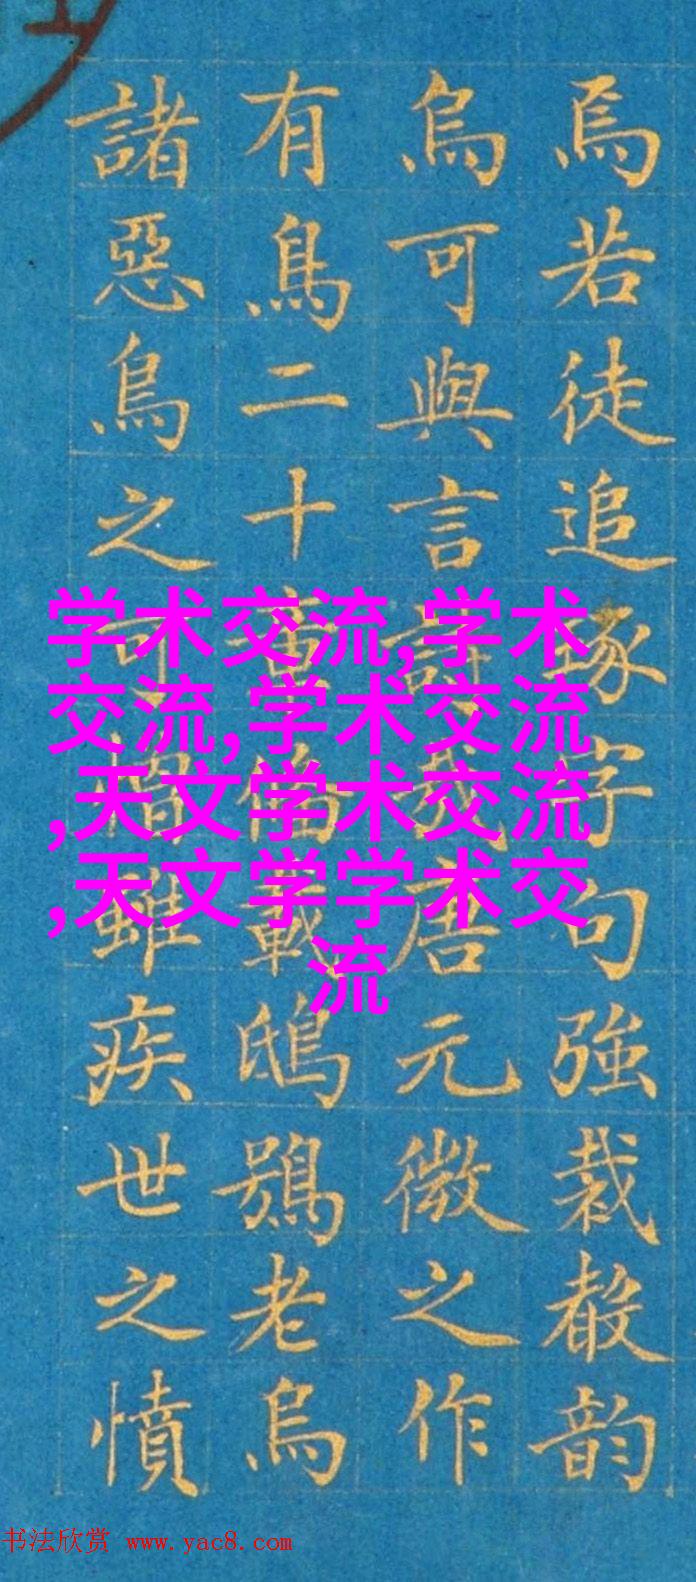 焉若徒追琢字句強裁散韵
烏可與言詩哉唐元微之作
有鳥二十章備載鴟鴞老烏
諸惡鳥之可憎雖疾世之憤
学术交流,学术
交流,学术交流
,天文学术交流
,天文学学术交
流
书法欣赏 www.yac8.com